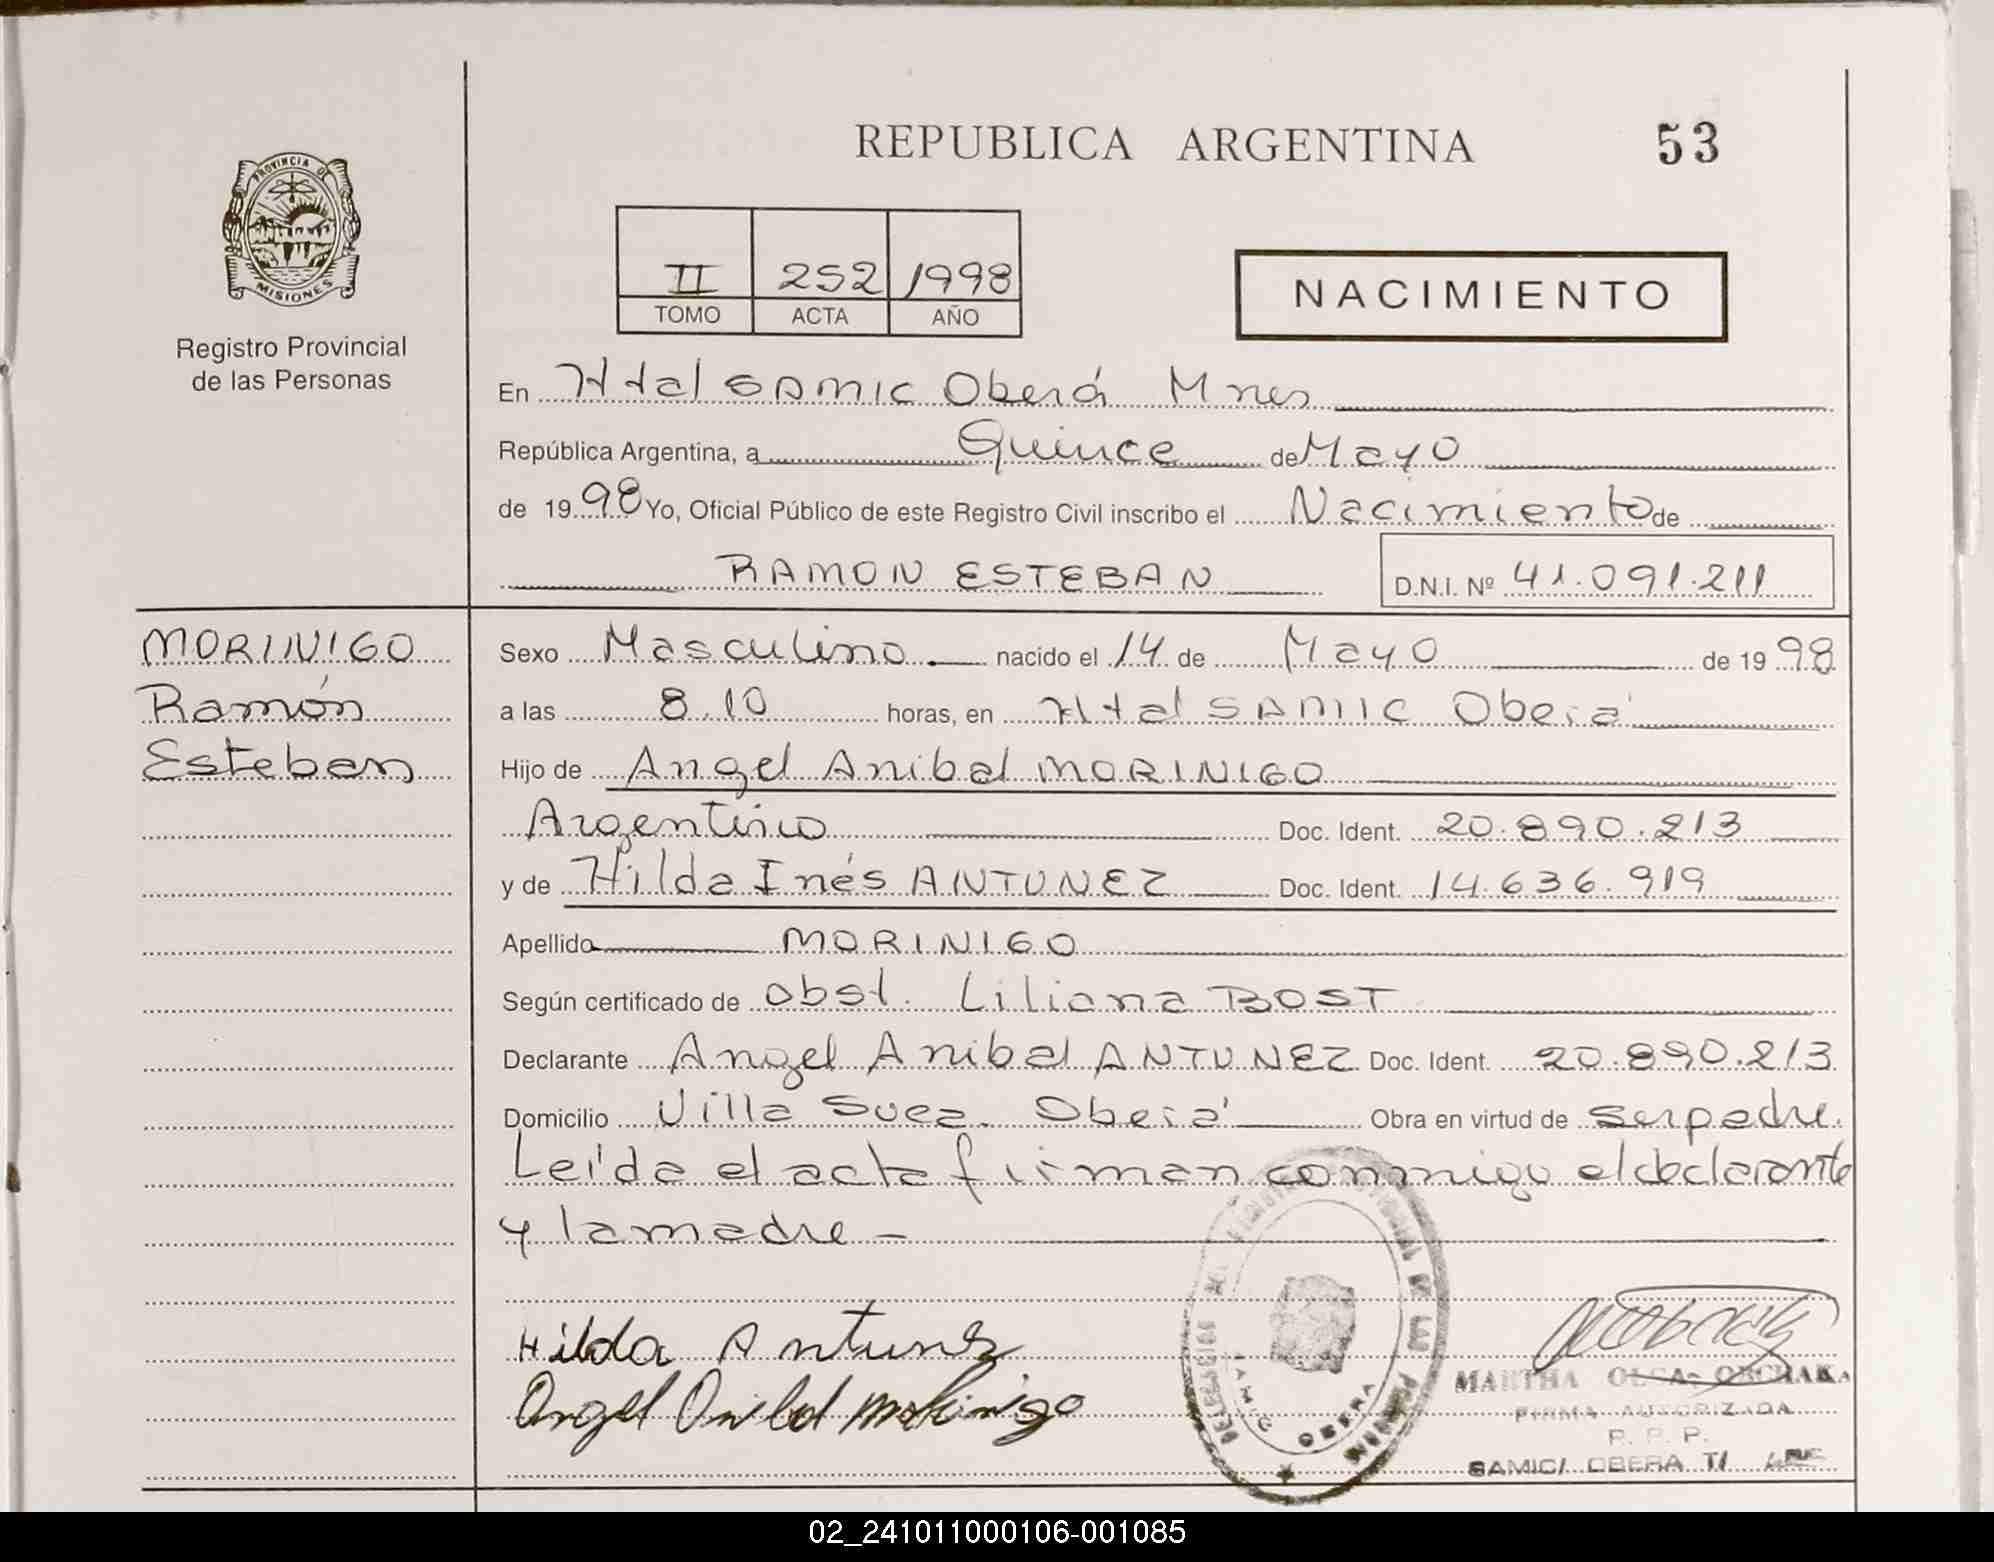 REPUBLICA ARGENTINA 53
PROVINCIA DE
MISIONES
Registro Provincial
de las Personas
II 252 1998
TOMO ACTA AÑO
NACIMIENTO
En Htal SAMIC Oberá Mnes
República Argentina, a Quince de Mayo
de 1998 Yo, Oficial Público de este Registro Civil inscribo el Nacimiento de
RAMON ESTEBAN D.N.I. Nº 41.091.211
MORINIGO
Ramón
Esteban
Sexo Masculino. nacido el 14 de Mayo de 1998
a las 8.10 horas, en Htal SAMIC Oberá
Hijo de Angel Anibal MORINIGO
Argentino Doc. Ident. 20.890.213
y de Hilda Inés ANTUNEZ Doc. Ident. 14.636.919
Apellido MORINIGO
Según certificado de obst. Liliana BOST
Declarante Angel Anibal ANTUNEZ Doc. Ident. 20.890.213
Domicilio Villa Suez. Oberá Obra en virtud de ser padre.
Leída el acta firman conmigo el declarante
y la madre -
Hilda Antunez
Angel Anibal Morinigo
OBERA
MARTHA OLGA
FIRMA AUTORIZADA
R. P. P.
SAMIC/ OBERA
02_241011000106-001085